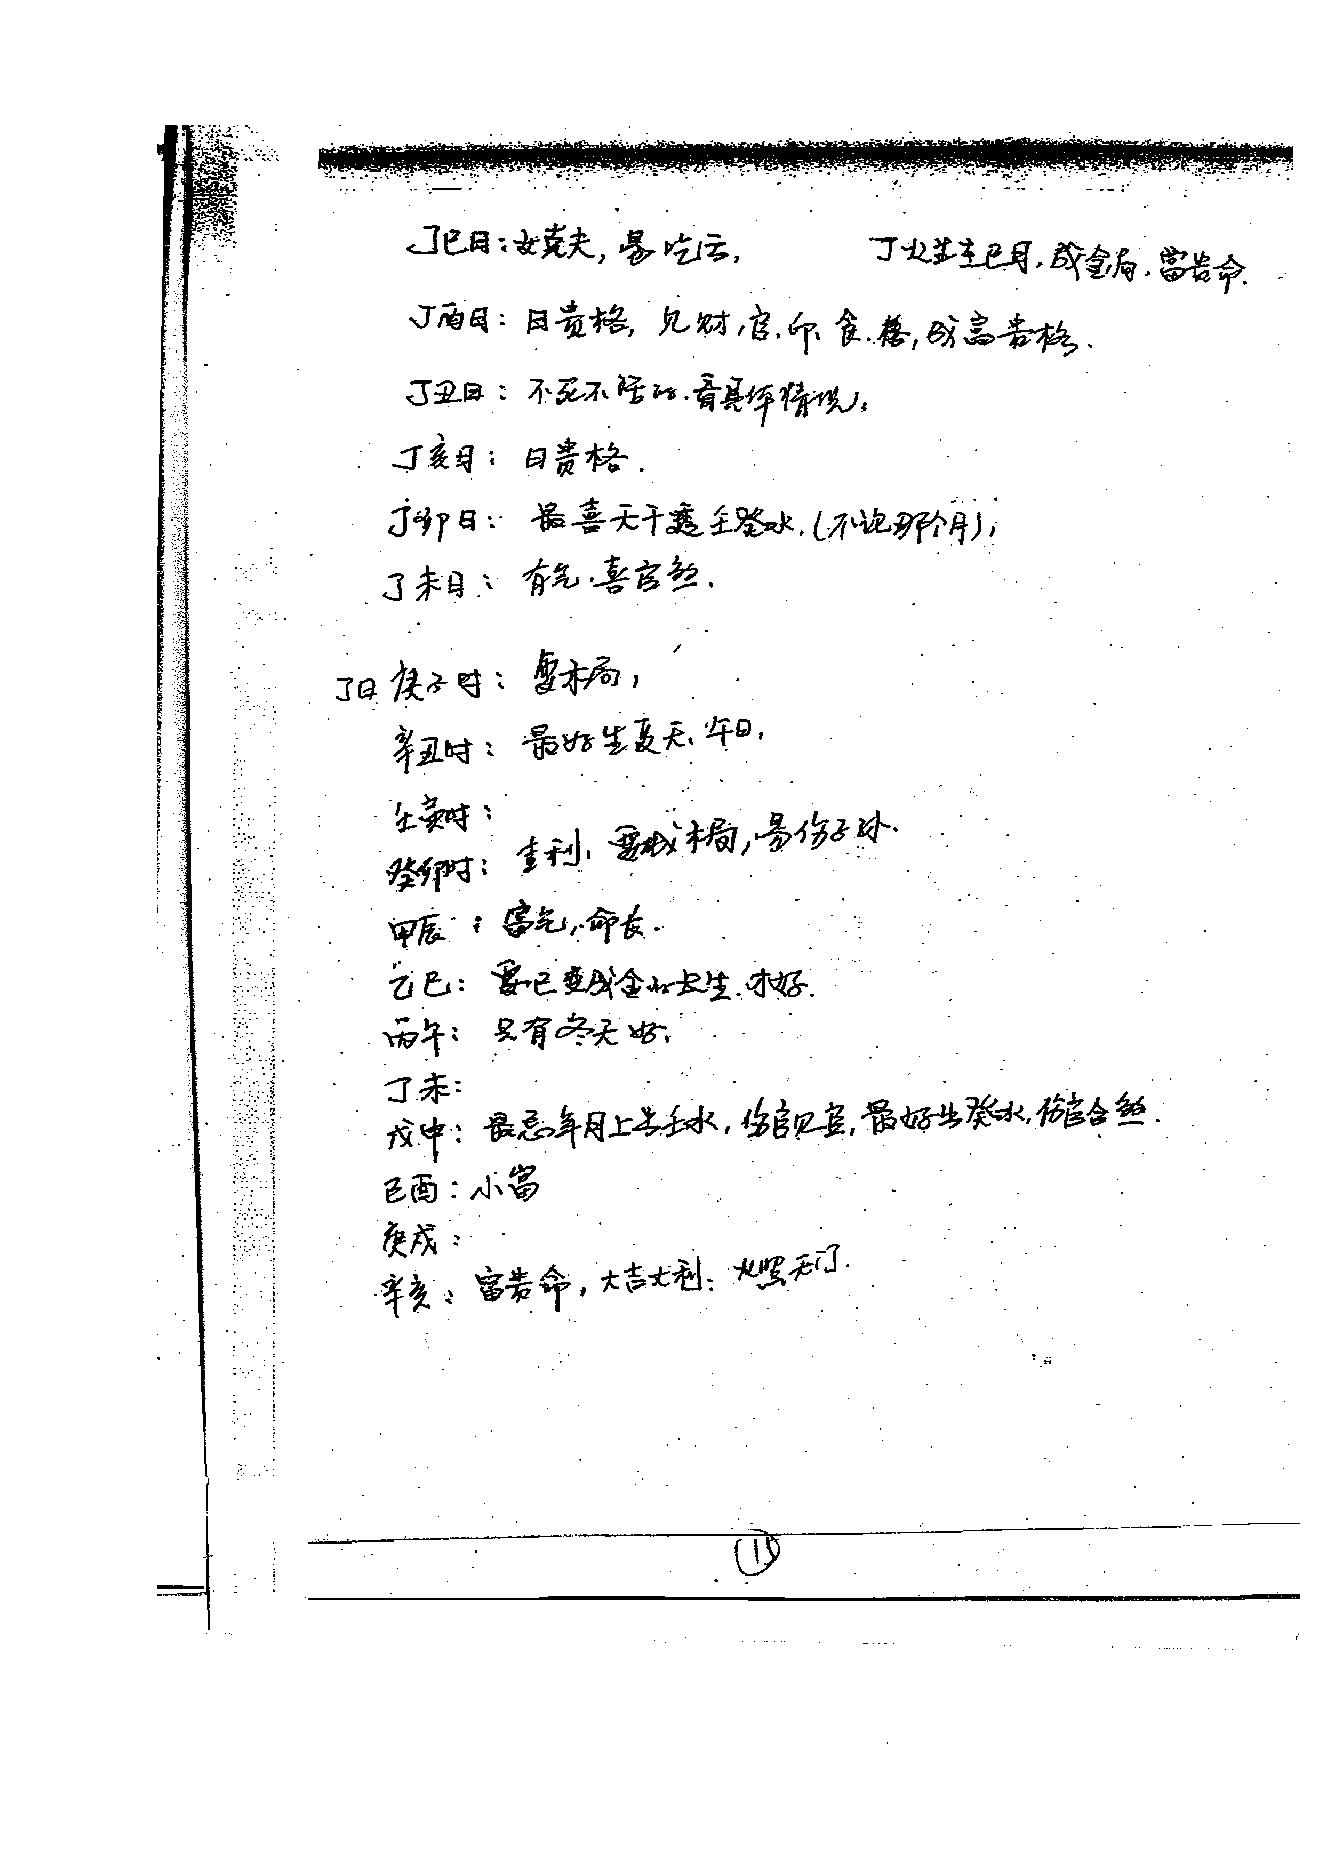 丁巳日：女克夫，易吃亏， 丁火生在巳月，成金局，富贵命．
丁酉日：日贵格，见财，官，印，食．格，成富贵格．
丁丑日：不死不活的．看具体情况．
丁亥日：日贵格．
丁卯日：最喜天干透壬癸水，(不论那个月)，
丁未日：有气．喜官煞．
丁日 庚子时：要木局，
辛丑时：最好生夏天，午日，
壬寅时：
癸卯时：吉利，要成木局，易伤子孙．
甲辰：富气，命长．
乙巳：要巳变成金的长生．才好．
丙午：只有冬天好，
丁未：
戊申：最忌年月上出壬水，伤官见官，最好出癸水，伤官合煞．
己酉：小富
庚戌：
辛亥：富贵命，大吉大利：火照天门．